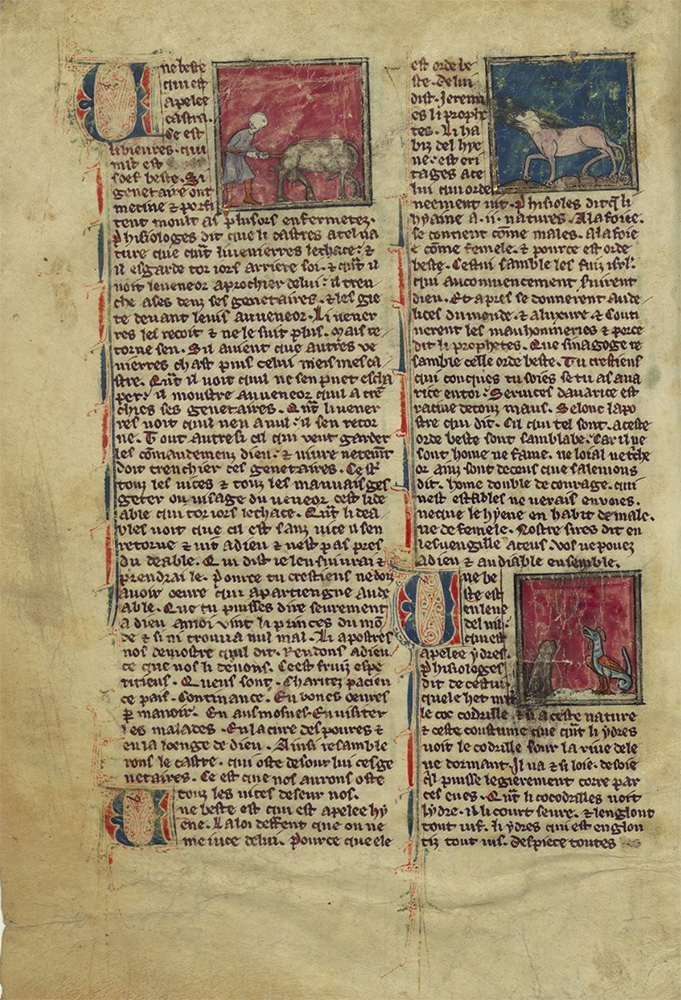 Une beste
qui est
apelee
castra.
Ce est
li bieures. qui
mlt est
soef beste. Si
genetaire ont
metine & porfi
tent moult as plusors enfermetez.
Phisiologes dit que li castres atel na
ture que qnt li venierres le chace. &
il esgarde toz iors arriere soi. & qnt il
voit le veneor aprochier de lui. il tren
che a ses denz ses genetaires. & les gie
te devant le vis au veneor. Li vener
res les recoit & ne le suit plus. mais re
torne sen. Sil avient que autres ve
nierres chast puis celui meismes ca
stre. Qnt il voit quil ne sen puet escha
per. il moustre au veneor quil a tren
chies ses genetaires. Qnt li vener
res voit quil nen a nul. il sen retor
ne. Tout autresi cil qui veut garder
les comandemenz dieu. & vivre netement
doit trenchier ces genetaires. Ce est
touz les vices & touz les mauvais ges
geter ou visage du veneor cest li de
able qui toz iors le chace. Qnt li dea
bles voit que cil est sanz vice il sen
retorne & vit a dieu & nest pas pres
du deable. Qui dist ie lensuivrai &
prendrai le. Pource tu crestiens ne doiz
avoir oevre qui apartiengne au de
able. Que tu puisses dire seurement
a dieu. a moi vint li princes du mon
de & si ni trouva nul mal. Li apostres
nos demostre qui dit. Rendons a dieu
ce que nos li devons. Ce est fruiz espe
ritiens. Quens sont. Charitez pacien
ce pais. Continance. En bones oevres
p manoir. En ausmosnes. En visiter
les malades. En la cure des povres &
en la loenge de dieu. Ainsi resamble
rons le castre. qui oste desour lui ces ge
netaires. Ce est que nos aurons oste
touz les vices deseur nos.
Une beste est qui est apelee hy
ene. La loi deffent que on ne
meniuce de lui. Pource que ele
est orde be
ste. De lui
dist Jeremi
es li prophe
tes. Li ha
biz del hye
ne. est eri
tages a ce
lui qui orde
neement vit. Phisioles dit qli
hyaine a .ii. natures. A la foie.
se contient come males. A la foie
come femele. & pource est orde
beste. Cestui samble les fuiz isrl.
qui au conmencement suirent
dieu. Et apres se donnerent au de
lices du monde & a luxure & couti
verent les mauhonmeries & porce
dit li prophetes. Que sinagoge re
samble celle orde beste. Tu crestiens
qui conques tu soies se tu as ava
rice en toi. Services davarice est
racine de touz maus. Selonc lapo
stre qui dit. Cil qui tel sont. a ceste
orde beste sont samblabe. Car il ne
sont home ne fame. ne loial ne tche
or. ainz sont deceus que salemons
dit. home double de courage. qui
nest estables ne verais en voies.
ne que le hyene en habit de male.
ne de femele. Nostre sires dit en
les euvengille a ceus. Vos ne poez
a dieu & au diable ensemble.
Une be
ste est
en levue
del nil.
qui est
apelee ydres.
Phisiologes
dit de cestui.
que le het mlt
le coc codrille. & si a ceste nature
& ceste coustume que qnt li ydres
voit le codrille sour la rive de le
ve dormant. Il va & si loie de boie
ql puisse legierement corre par
ces eves. Qnt li cocodrilles voit
lydre. il li court seure. & lenglout
tout vif. li ydres qui est englou
tiz tout vis. despiece toutes